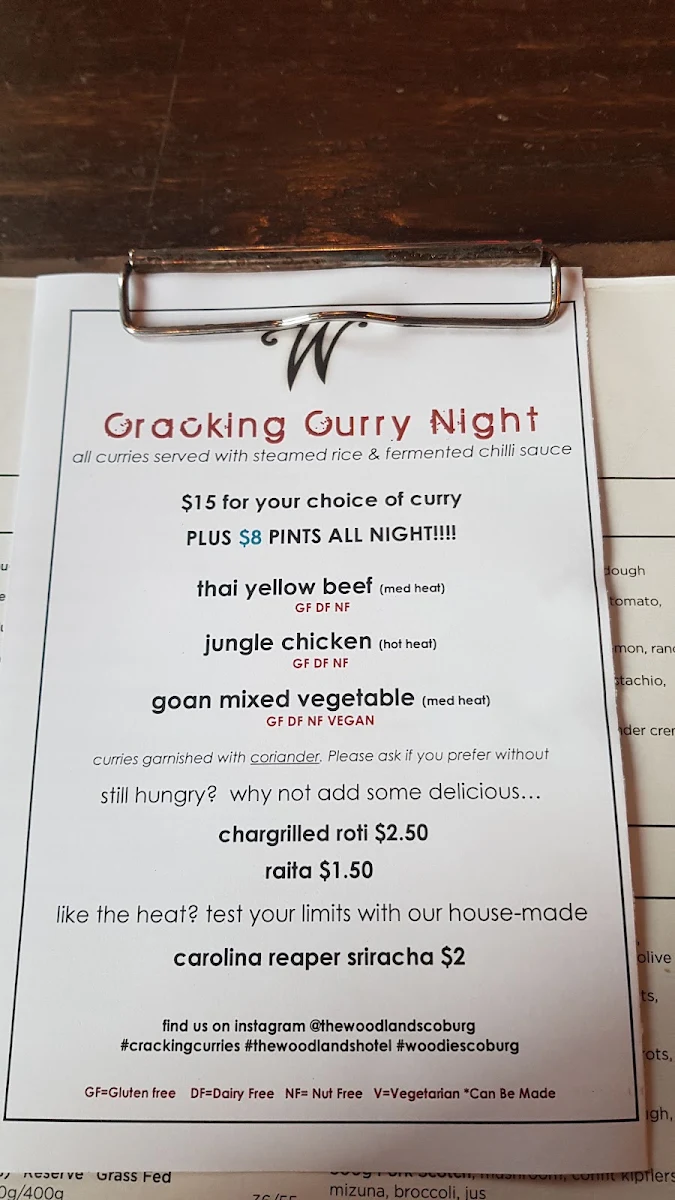 W
Cracking Curry Night
all curries served with steamed rice & fermented chilli sauce
$15 for your choice of curry
PLUS $8 PINTS ALL NIGHT!!!!
thai yellow beef (med heat)
GF DF NF
jungle chicken (hot heat)
GF DF NF
goan mixed vegetable (med heat)
GF DF NF VEGAN
curries garnished with coriander. Please ask if you prefer without
still hungry? why not add some delicious...
chargrilled roti $2.50
raita $1.50
like the heat? test your limits with our house-made
carolina reaper sriracha $2
find us on instagram @thewoodlandscoburg
#crackingcurries #thewoodlandshotel #woodiescoburg
GF=Gluten free DF=Dairy Free NF= Nut Free V=Vegetarian *Can Be Made
tomato,
olive
Reserve Grass Fed
0g/400g
mushroom, confit kipflers
mizuna, broccoli, jus